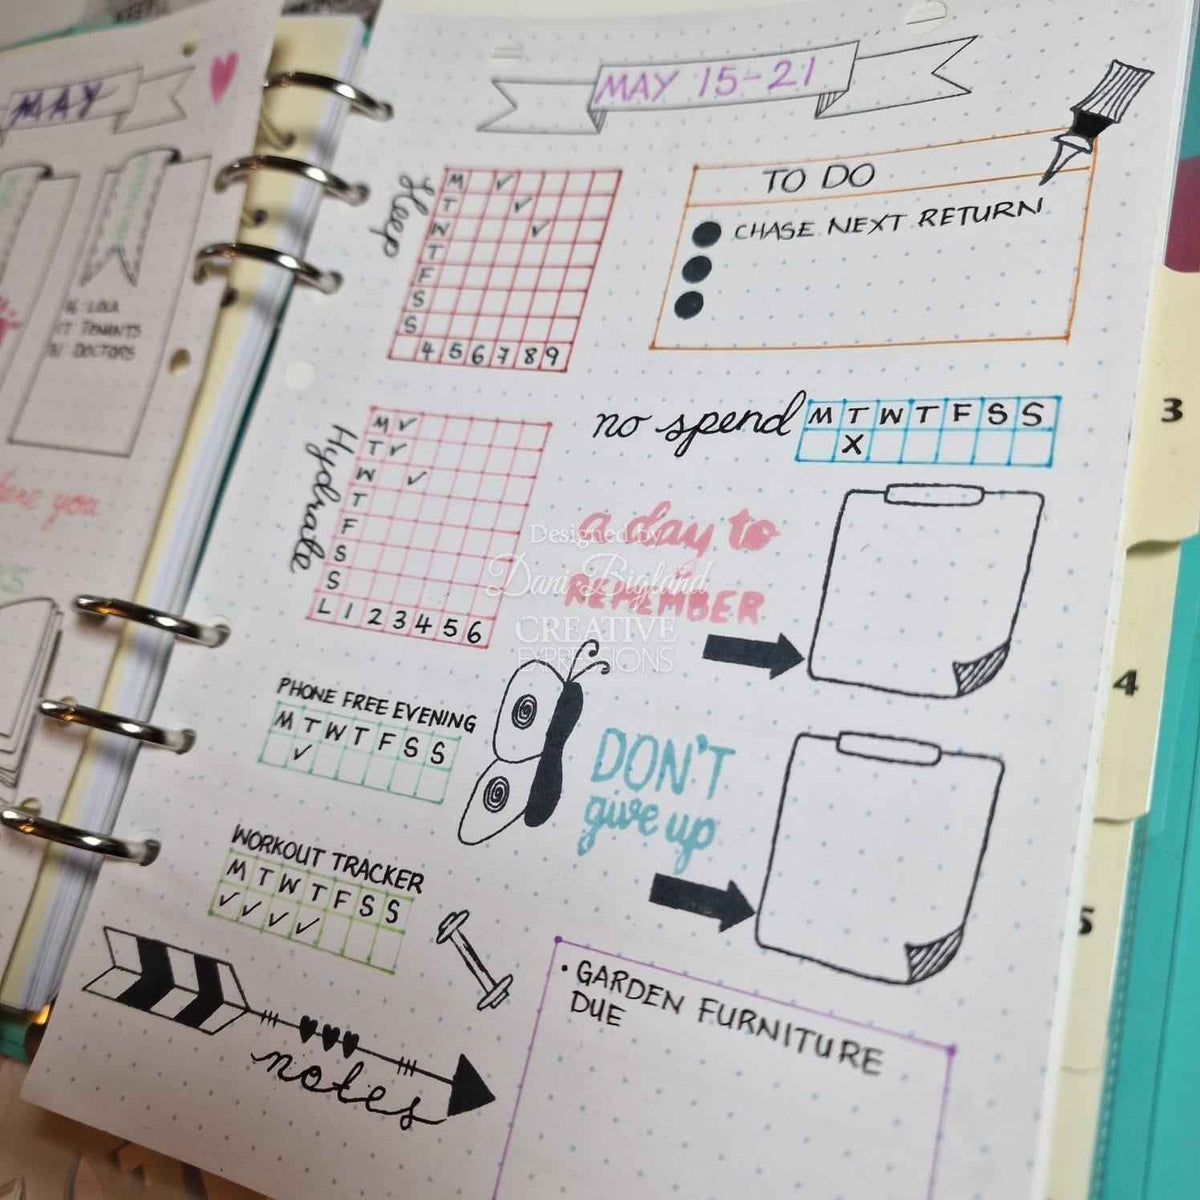 MAY
LOLA
TENANTS
DOCTORS
you
MAY 15-21
Sleep
M ✓
T ✓
W ✓
T
F
S
S
4 5 6 7 8 9
TO DO
CHASE NEXT RETURN
no spend
M T W T F S S
X
Hydrate
M ✓
T ✓
W ✓
T
F
S
S
L 1 2 3 4 5 6
a day to
REMEMBER
Designed by
Dani Bigland
CREATIVE
EXPRESSIONS
PHONE FREE EVENING
M T W T F S S
✓
DON'T
give up
WORKOUT TRACKER
M T W T F S S
✓ ✓ ✓ ✓
notes
• GARDEN FURNITURE
DUE
3
4
5